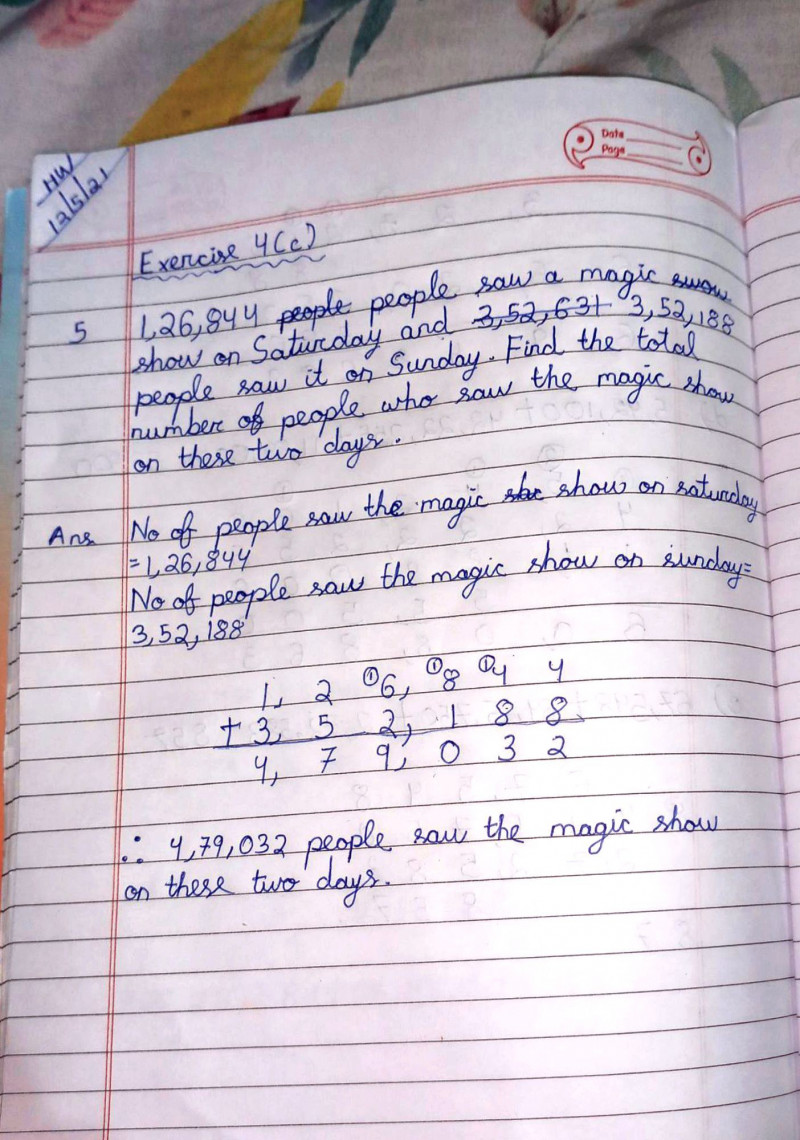 Date
Page
HW
12/5/21
Exercise 4(c)
5 1,26,844 people people saw a magic swow
show on Saturday and 3,52,631 3,52,188
people saw it on Sunday. Find the total
number of people who saw the magic show
on these two days.
Ans No of people saw the magic sho show on saturday
=1,26,844
No of people saw the magic show on sunday=
3,52,188
1, 2 ①6, ①8 ①4 4
+ 3, 5 2, 1 8 8
4, 7 9, 0 3 2
∴ 4,79,032 people saw the magic show
on these two days.